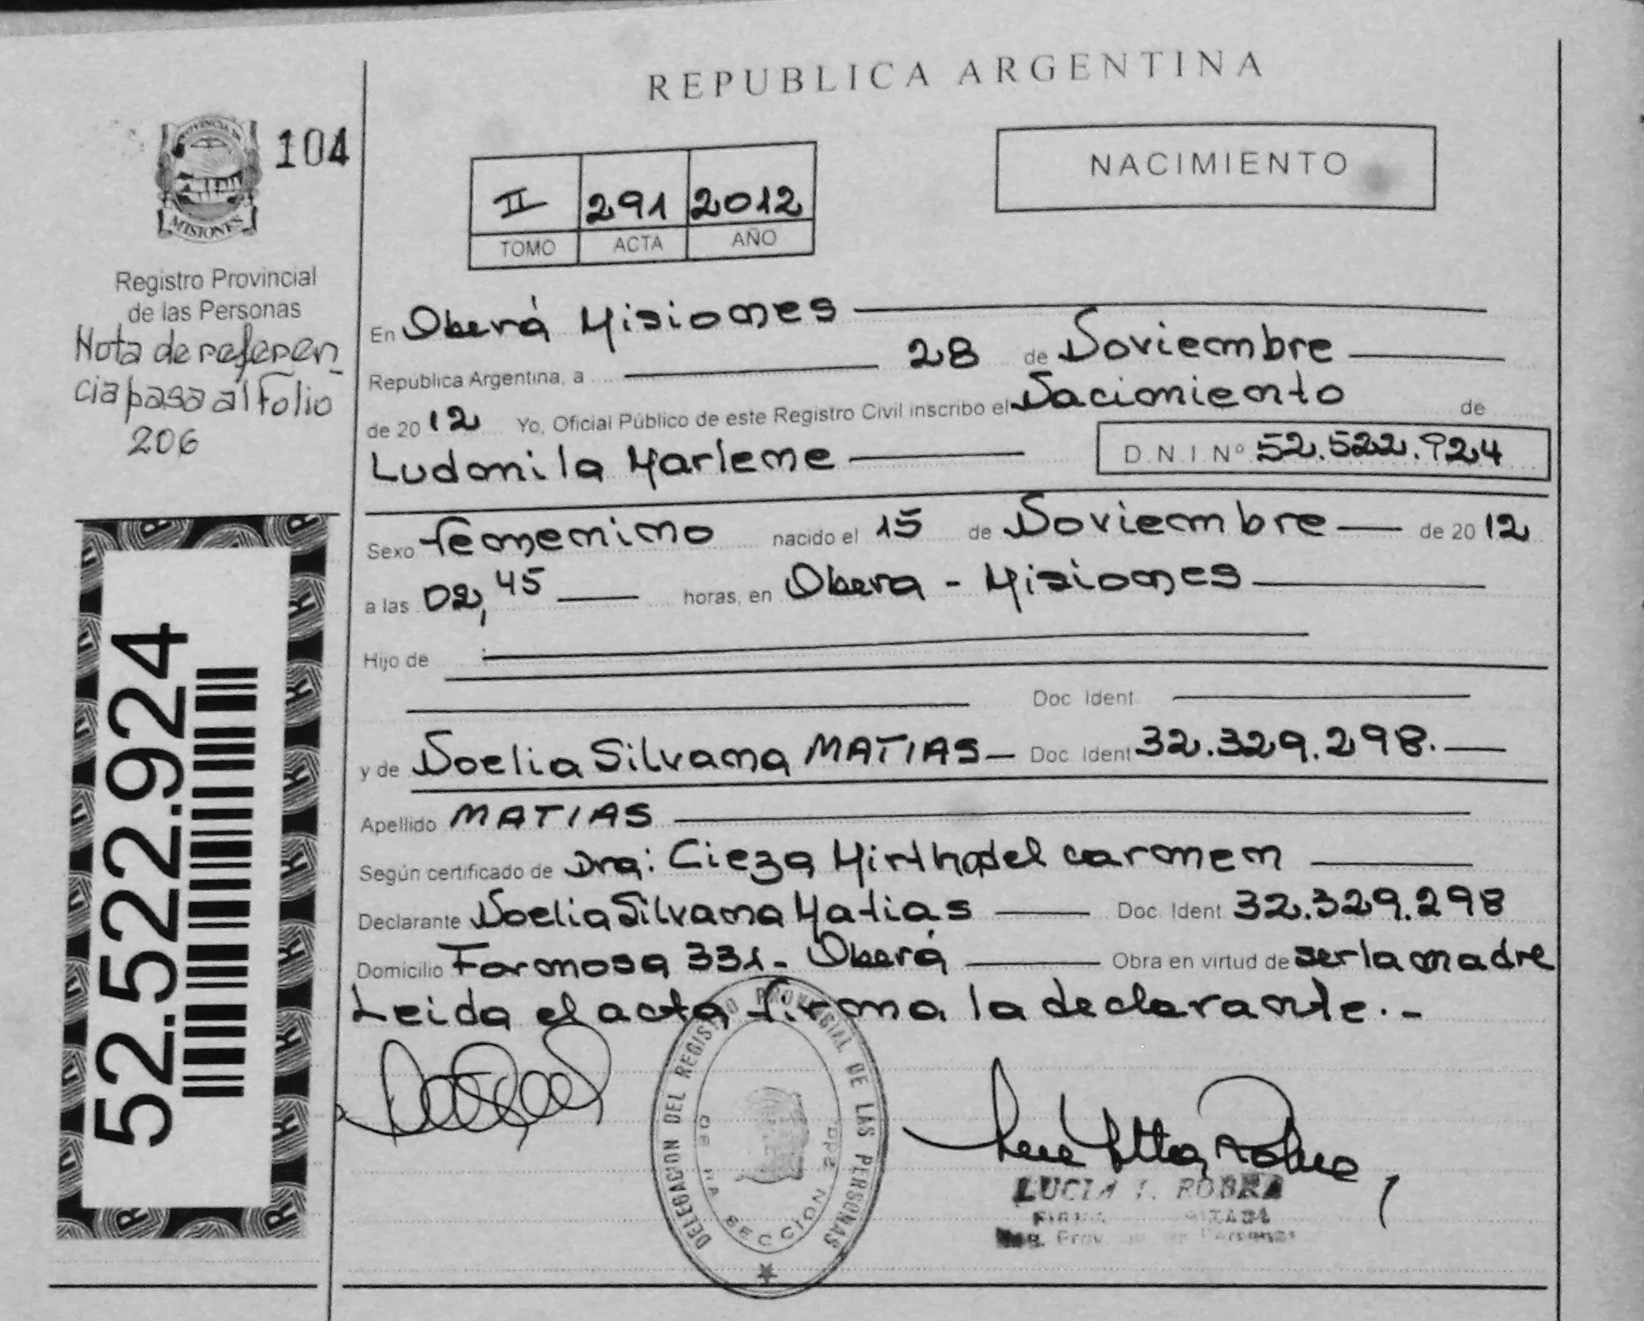 REPUBLICA ARGENTINA
PROVINCIA DE
MISIONES
104
NACIMIENTO
II 291 2012
TOMO ACTA AÑO
Registro Provincial
de las Personas
Nota de referen
cia pasa al Folio
206
52.522.924
En Oberá Misiones
República Argentina, a 28 de Noviembre
de 2012 Yo, Oficial Público de este Registro Civil inscribo el Nacimiento de
Ludmila Marlene D.N.I Nº 52.522.924
Sexo femenino nacido el 15 de Noviembre de 2012
a las 02,45 horas, en Obera - Misiones
Hijo de
Doc Ident
y de Noelia Silvana MATIAS Doc Ident 32.329.298.
Apellido MATIAS
Según certificado de Dra: Cieza Mirtha del carmen
Declarante Noelia Silvana Matias Doc. Ident 32.329.298
Domicilio Formosa 331- Oberá Obra en virtud de ser la madre
Leida el acta firma la declarante.-
DELEGACION DEL REGISTRO PROVINCIAL DE LAS PERSONAS
SECCION 2da.
LUCIA I.